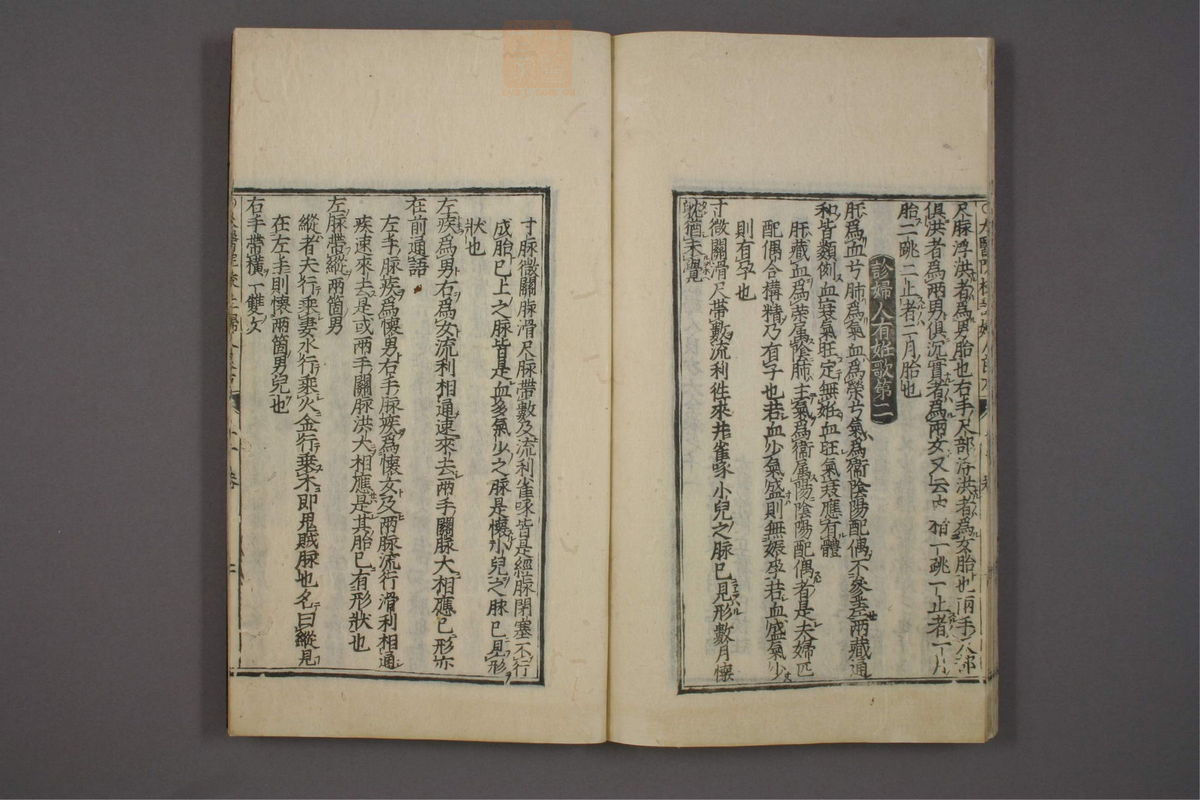 尺脉浮洪者爲男胎也右手尺部浮洪者爲女胎也兩手尺部
俱洪者爲兩男俱沉實者爲兩女又云中指一跳一止者一月
胎二跳二止者二月胎也
診婦人有姙歌第二
肝爲血兮肺爲氣血爲榮兮氣爲衞陰陽配偶不參差兩藏通
和皆類例血衰氣旺定無姙血旺氣衰應有體
肝藏血爲榮属陰肺主氣爲衞属陽陰陽配偶者是夫婦匹
配偶合構精乃有子也若血少氣盛則無娠孕若血盛氣少
則有孕也
寸微關滑尺帶數流利徃來并雀啄小兒之脉已見形數月懷
躭猶未覺
寸脉微關脉滑尺脉帶數及流利雀啄皆是經脉閉塞不行
成胎已上之脉皆是血多氣少之脉是懷小兒之脉已見形
狀也
左疾爲男右爲女流利相通速來去兩手關脉大相應已形亦
在前通語
左手脉疾爲懷男右手脉疾爲懷女及兩脉流行滑利相通
疾速來去是或兩手關脉洪大相應是其胎已有形狀也
左脉帶縱兩箇男
縱者夫行乗妻水行乗火金行乗木即鬼賊脉也名曰縱見
在左手則懷兩箇男兒也
右手帶橫一雙女